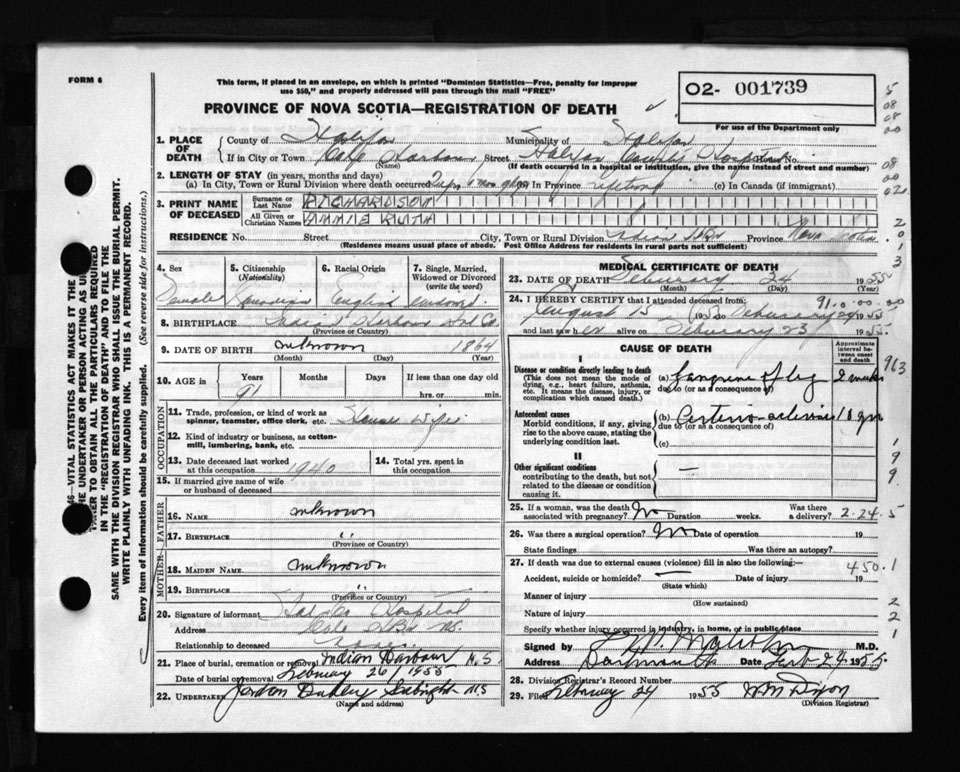 FORM 6
This form, if placed in an envelope, on which is printed "Dominion Statistics—Free, penalty for improper
use $50," and properly addressed will pass through the mail "FREE"
02- 001739
PROVINCE OF NOVA SCOTIA—REGISTRATION OF DEATH
For use of the Department only
1. PLACE OF DEATH
County of Halifax Municipality of Halifax
If in City or Town Cole Harbour Street Halifax County Hospital House No.
(Name) (If death occurred in a hospital or institution, give the name instead of street and number)
2. LENGTH OF STAY (in years, months and days)
(a) In City, Town or Rural Division where death occurred (b) In Province lifetime (c) In Canada (if immigrant)
3. PRINT NAME OF DECEASED
Surname or Last Name RICHARDSON
All Given or Christian Names ANNIE RUTH
RESIDENCE No. Street City, Town or Rural Division Indian Hbr Province Nova Scotia
(Residence means usual place of abode. Post Office Address for residents in rural parts not sufficient)
4. Sex
Female
5. Citizenship (Nationality)
Canadian
6. Racial Origin
English
7. Single, Married, Widowed or Divorced (write the word)
widowed
8. BIRTHPLACE Indian Harbour Hfx Co.
(Province or Country)
9. DATE OF BIRTH unknown 1864
(Month) (Day) (Year)
10. AGE in Years Months Days If less than one day
91 hrs. or min.
OCCUPATION
11. Trade, profession, or kind of work as
spinner, teamster, office clerk, etc. House Wife
12. Kind of industry or business, as cotton-
mill, lumbering, bank, etc.
13. Date deceased last worked
at this occupation 1940
14. Total yrs. spent in
this occupation
15. If married give name of wife
or husband of deceased
FATHER
16. NAME unknown
17. BIRTHPLACE "
(Province or Country)
MOTHER
18. MAIDEN NAME unknown
19. BIRTHPLACE "
(Province or Country)
20. Signature of informant Hospital
Address Cole Hbr NS.
Relationship to deceased
21. Place of burial, cremation or removal Indian Harbour N.S
Date of burial or removal February 26 1955
22. UNDERTAKER Seabright N.S
(Name and address)
MEDICAL CERTIFICATE OF DEATH
23. DATE OF DEATH February 24 1955
(Month) (Day) (Year)
24. I HEREBY CERTIFY that I attended deceased from:
August 15 to February 24 1955
and last saw her alive on February 23 1955
CAUSE OF DEATH
Approximate interval between onset and death
I
Disease or condition directly leading to death
(This does not mean the mode of
dying, e.g., heart failure, asthenia,
etc. It means the disease, injury, or
complication which caused death.)
(a) Gangrene of leg 2 weeks
due to (or as a consequence of)
Antecedent causes
Morbid conditions, if any, giving
rise to the above cause, stating the
underlying condition last.
(b) Arterio-sclerosis 10 yrs
due to (or as a consequence of)
(c)
II
Other significant conditions
contributing to the death, but not
related to the disease or condition
causing it.
—
25. If a woman, was the death
associated with pregnancy? No Duration weeks. Was there a delivery?
2-24-5
26. Was there a surgical operation? No Date of operation 19
State findings Was there an autopsy?
27. If death was due to external causes (violence) fill in also the following:—
450.1
Accident, suicide or homicide? Date of injury 19
(State which)
Manner of injury
(How sustained)
Nature of injury
Specify whether injury occurred in industry, in home, or in public place
Signed by M.D.
Address Dartmouth Date Feb 24 1955
28. Division Registrar's Record Number
29. Filed February 24 1955 W M Dixon
(Division Registrar)
SAME WITH THE DIVISION REGISTRAR WHO SHALL ISSUE THE BURIAL PERMIT.
WRITE PLAINLY WITH UNFADING INK. THIS IS A PERMANENT RECORD.
Every item of information should be carefully supplied. (See reverse side for instructions.)